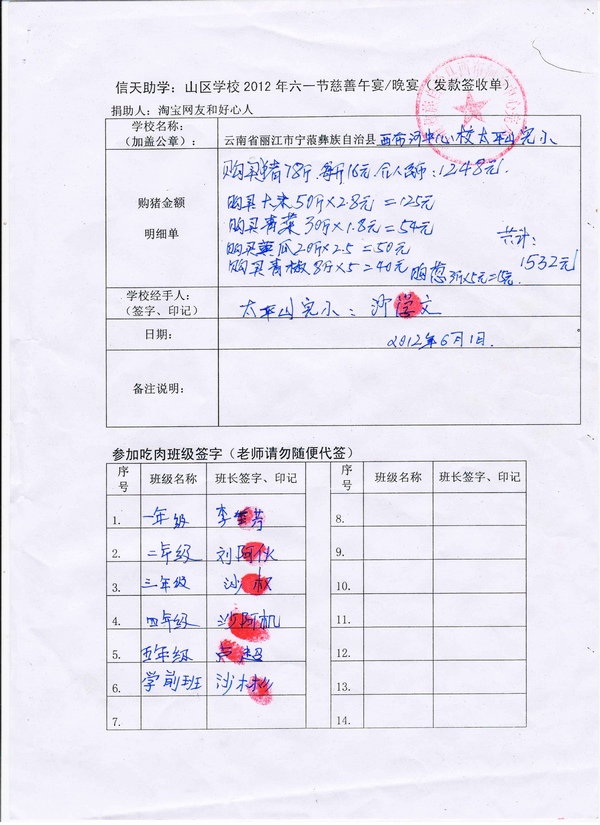 信天助学：山区学校2012年六一节慈善午宴/晚宴（发款签收单）
捐助人：淘宝网友和好心人
学校名称：
（加盖公章）：
云南省丽江市宁蒗彝族自治县 西布河中心校太平山完小
购猪金额
明细单
购买猪78斤 每斤16元 合人民币：1248元.
购买大米50斤×2.8元=125元
购买青菜30斤×1.8元=54元
购买黄瓜20斤×2.5=50元
购买青椒8斤×5=40元 购葱3斤×5元=15元
共计：
1532元
学校经手人：
（签字、印记）
太平山完小：沙学文
日期：
2012年6月1日.
备注说明：
参加吃肉班级签字（老师请勿随便代签）
序号 班级名称 班长签字、印记 序号 班级名称 班长签字、印记
1. 一年级 李 芳 8.
2. 二年级 刘阿伙 9.
3. 三年级 沙 权 10.
4. 四年级 沙阿机 11.
5. 五年级 卢 超 12.
6. 学前班 沙木杉 13.
7. 14.